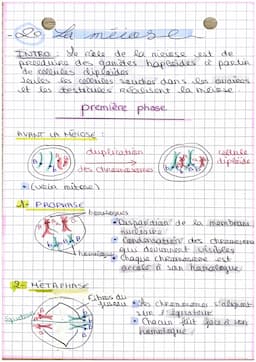 2° La méiose
INTRO : Le rôle de la méiose est de
produire des gamètes haploïdes à partir
de cellules diploïdes
Seules les cellules situées dans les ovaires
et les testicules réalisent la méiose
première phase
AVANT LA MÉIOSE :
duplication
des chromosomes
cellule
diploïde
(voir mitose)
1- PROPHASE
homologues
homologues
Disparition de la membrane
nucléaire
Condensation des chromosomes
qui deviennent visibles
Chaque chromosome est
accolé à son homologue
2- MÉTAPHASE
Fibres du
fuseau
Équateur
Les chromosomes s'alignent
sur l'équateur
Chacun fait face à son
homologue